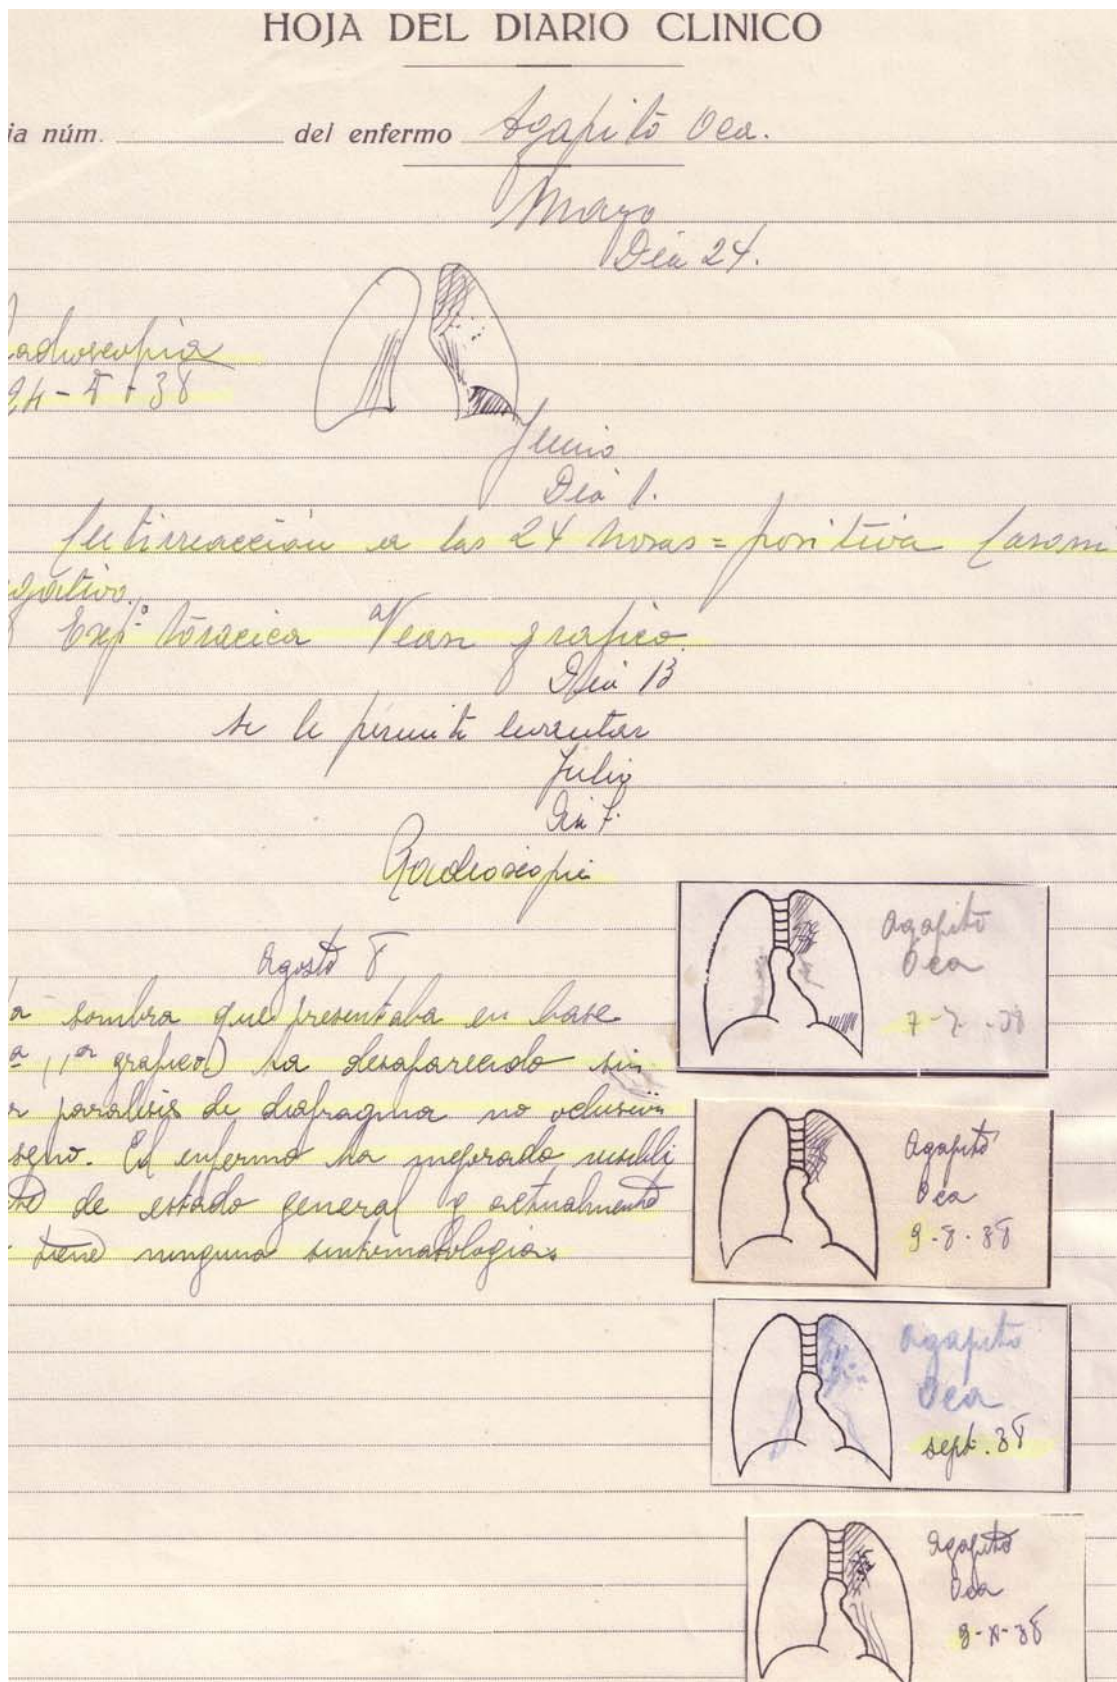 HOJA DEL DIARIO CLINICO
ia núm. del enfermo Agapito Oca.
Mayo
Dia 24.
adioscopia
24-V-38
Junio
Dia 1.
Cutirreacción a las 24 horas = positiva Casoni
gativo.
Expº torácica Vease grafico.
Dia 13
se le permite levantar
Julio
Dia 7.
Radioscopia
Agosto 8
a sombra que presentaba en base
(1er grafico) ha desaparecido sin
paralisis de diafragma no oclusión
seno. El enfermo ha mejorado
de estado general y actualmente
tiene ninguna sintomatologia
Agapito
Oca
7-7-38
Agapito
Oca
9-8-38
Agapito
Oca
sept. 38
Agapito
Oca
9-X-38